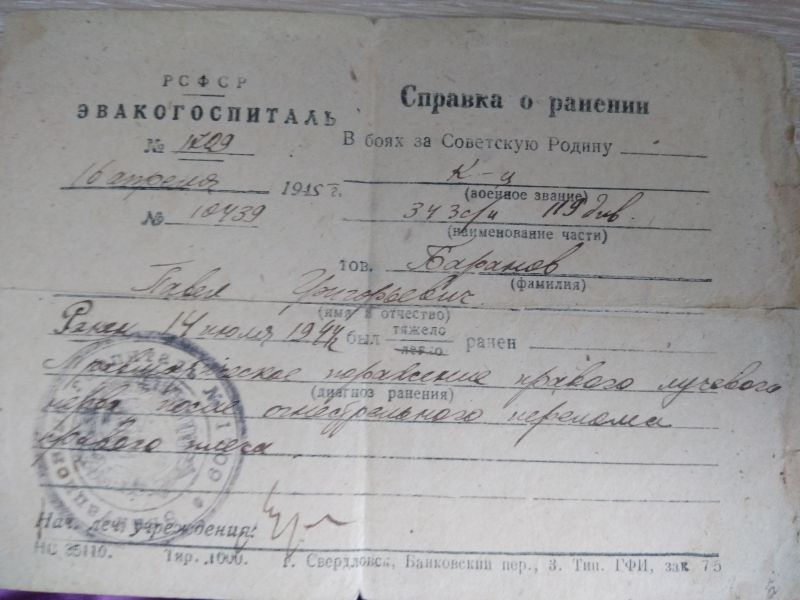 РСФСР
ЭВАКОГОСПИТАЛЬ
№ 1709
16 апреля 1945 г.
№ 10439
Справка о ранении
В боях за Советскую Родину
к-ц
(военное звание)
343 с/п 119 див.
(наименование части)
тов. Баранов
(фамилия)
Павел Григорьевич
(имя и отчество)
Ранен 14 июля 1944 был тяжело ранен
легко
Травматическое поражение правого лучевого
(диагноз ранения)
нерва после огнестрельного перелома
правого плеча
Нач. леч. учреждения:
НС 35110. Тир. 1000. г. Свердловск, Банковский пер., 3. Тип. ГФИ, зак 75